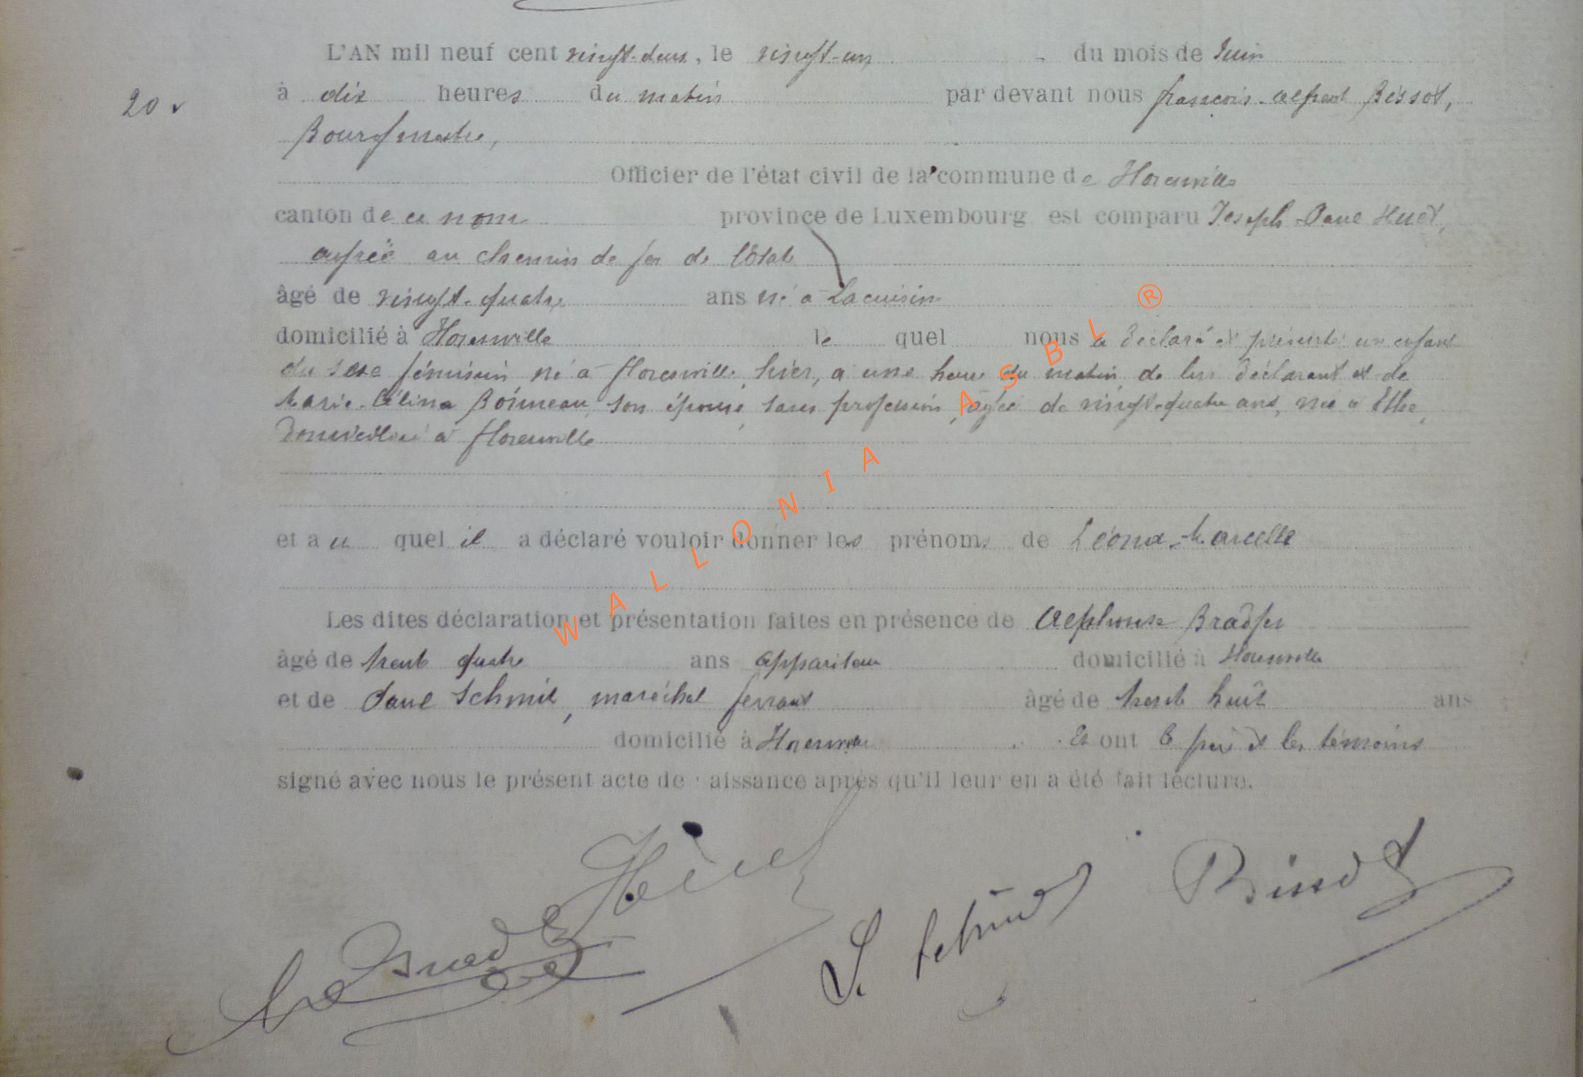 L'AN mil neuf cent vingt-deux, le vingt-un du mois de Juin
20 à dix heures du matin par devant nous françois-alfred Bissot,
Bourgmestre,
Officier de l'état civil de la commune de Florenville
canton de ce nom province de Luxembourg est comparu Joseph-Paul Huet,
agréé au chemin de fer de l'Etat
âgé de vingt-quatre ans né à Lacuisine
domicilié à Florenville le quel nous a déclaré et présenté un enfant
du sexe féminin, né à florenville, hier, à une heure du matin, de lui déclarant et de
Marie-Célina Boinneau, son épouse, sans profession, âgée de vingt-quatre ans, née à Ethe,
domiciliée à florenville
et au quel il a déclaré vouloir donner les prénoms de Léona-Marcelle
Les dites déclaration et présentation faites en présence de Alphonse Bradfer
âgé de trente quatre ans appariteur domicilié à Florenville
et de Paul Schmit, maréchal ferrant âgé de trente huit ans
domicilié à Florenville Et ont le père et les témoins
signé avec nous le présent acte de aissance après qu'il leur en a été fait lecture.
WALLONIA ASBL ®
Huet
Bissot